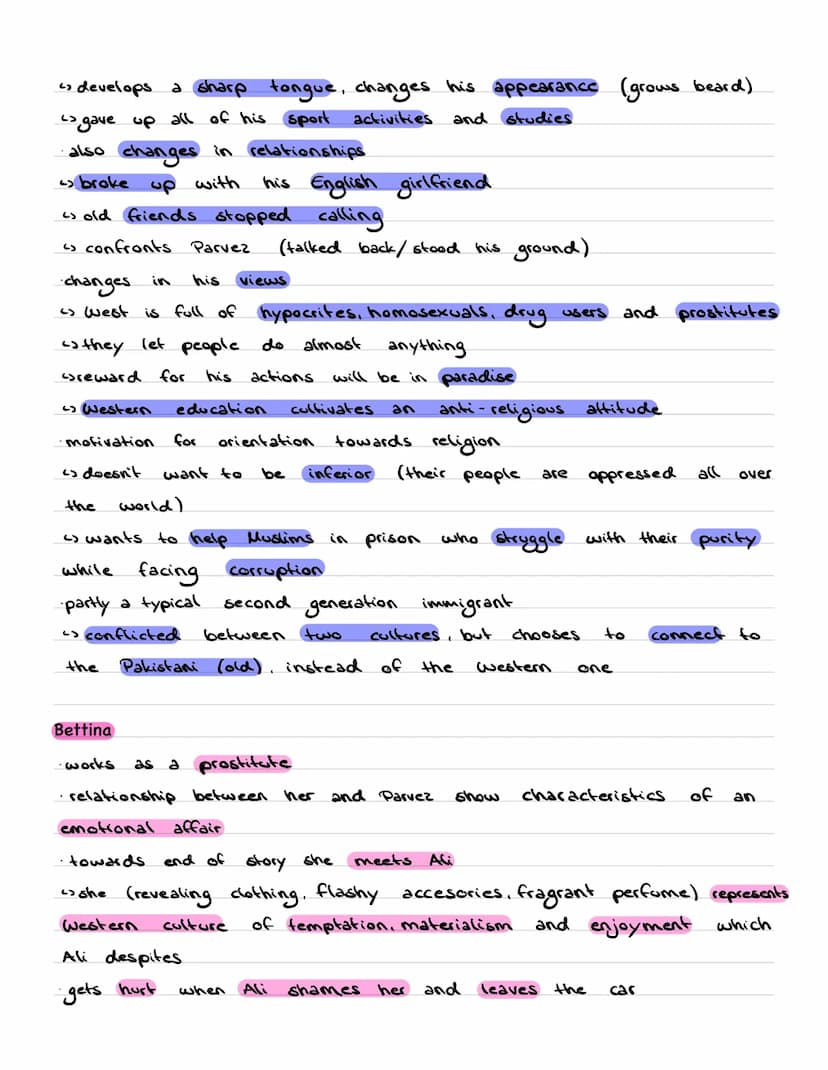 ↳ develops a sharp tongue, changes his appearance (grows beard)
↳ gave up all of his sport activities and studies
· also changes in relationships
↳ broke up with his English girlfriend
↳ old friends stopped calling
↳ confronts Parvez (talked back/stood his ground)
· changes in his views
↳ West is full of hypocrites, homosexuals, drug users and prostitutes
↳ they let people do almost anything
↳ reward for his actions will be in paradise
↳ Western education cultivates an anti-religious attitude
· motivation for orientation towards religion
↳ doesn't want to be inferior (their people are oppressed all over
the world)
↳ wants to help Muslims in prison who struggle with their purity
while facing corruption
· partly a typical second generation immigrant
↳ conflicted between two cultures, but chooses to connect to
the Pakistani (old), instead of the Western one
Bettina
· works as a prostitute
· relationship between her and Parvez show characteristics of an
emotional affair
· towards end of story she meets Ali
↳ she (revealing clothing, flashy accesories, fragrant perfume) represents
Western culture of temptation, materialism and enjoyment which
Ali despites
· gets hurt when Ali shames her and leaves the car